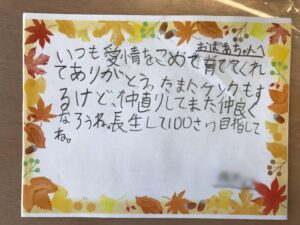 おばあちゃんへ
いつも愛情をこめて育ててくれ
てありがとう。たまにケンカもす
るけど、仲直りしてまた仲良く
なろうね。長生して100さい目指して
ね。